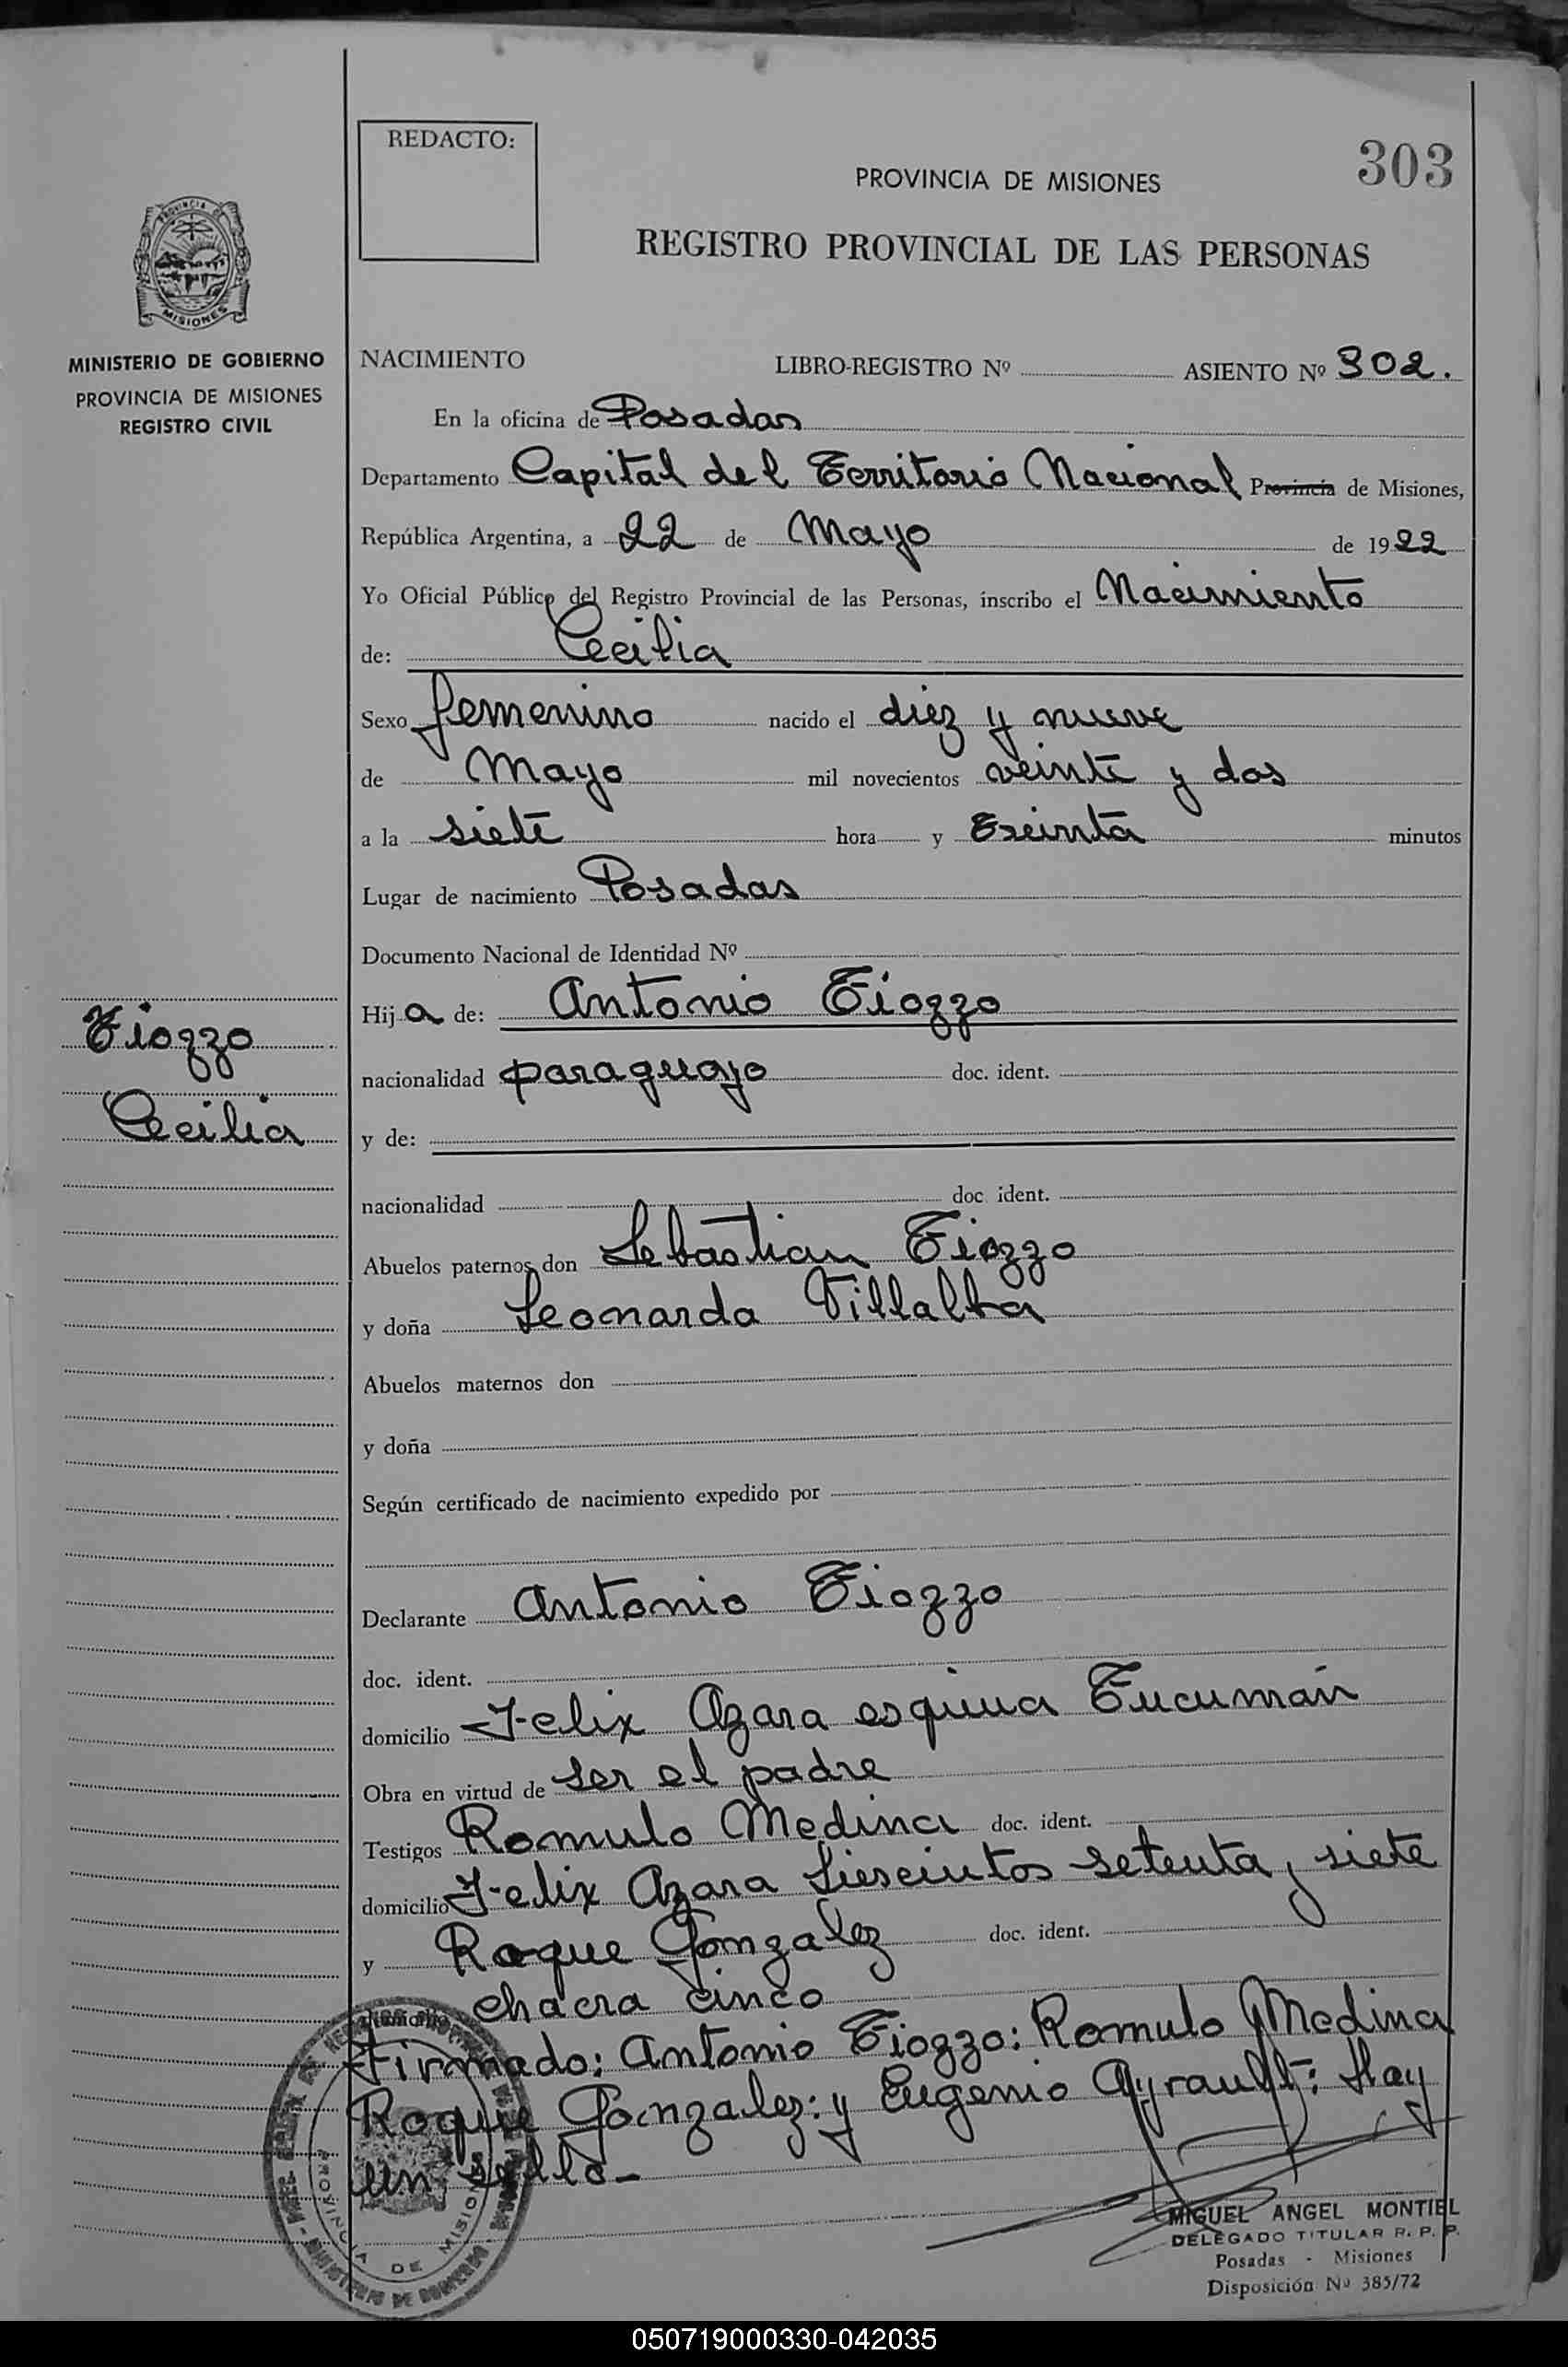 REDACTO:
303
PROVINCIA DE MISIONES
REGISTRO PROVINCIAL DE LAS PERSONAS
PROVINCIA DE
MISIONES
MINISTERIO DE GOBIERNO
PROVINCIA DE MISIONES
REGISTRO CIVIL
NACIMIENTO LIBRO-REGISTRO Nº ASIENTO Nº 302.
En la oficina de Posadas
Departamento Capital del Territorio Nacional Provincia de Misiones,
República Argentina, a 22 de Mayo de 1922
Yo Oficial Público del Registro Provincial de las Personas, inscribo el Nacimiento
de: Cecilia
Sexo femenino nacido el diez y nueve
de Mayo mil novecientos veinte y dos
a la siete hora y treinta minutos
Lugar de nacimiento Posadas
Documento Nacional de Identidad Nº
Hija de: Antonio Tiozzo
Tiozzo
Cecilia
nacionalidad paraguayo doc. ident.
y de:
nacionalidad doc. ident.
Abuelos paternos don Sebastian Tiozzo
y doña Leonarda Villalba
Abuelos maternos don
y doña
Según certificado de nacimiento expedido por
Declarante Antonio Tiozzo
doc. ident.
domicilio Felix Azara esquina Tucumán
Obra en virtud de ser el padre
Testigos Romulo Medina doc. ident.
domicilio Felix Azara setenta y siete
y Roque Gonzalez doc. ident.
chacra cinco
Firmado: Antonio Tiozzo: Romulo Medina
Roque Gonzalez: y Eugenio Ayrault: Hay
un sello-
PROVINCIA DE MISIONES
MIGUEL ANGEL MONTIEL
DELEGADO TITULAR R. P. P.
Posadas - Misiones
Disposición Nº 385/72
050719000330-042035